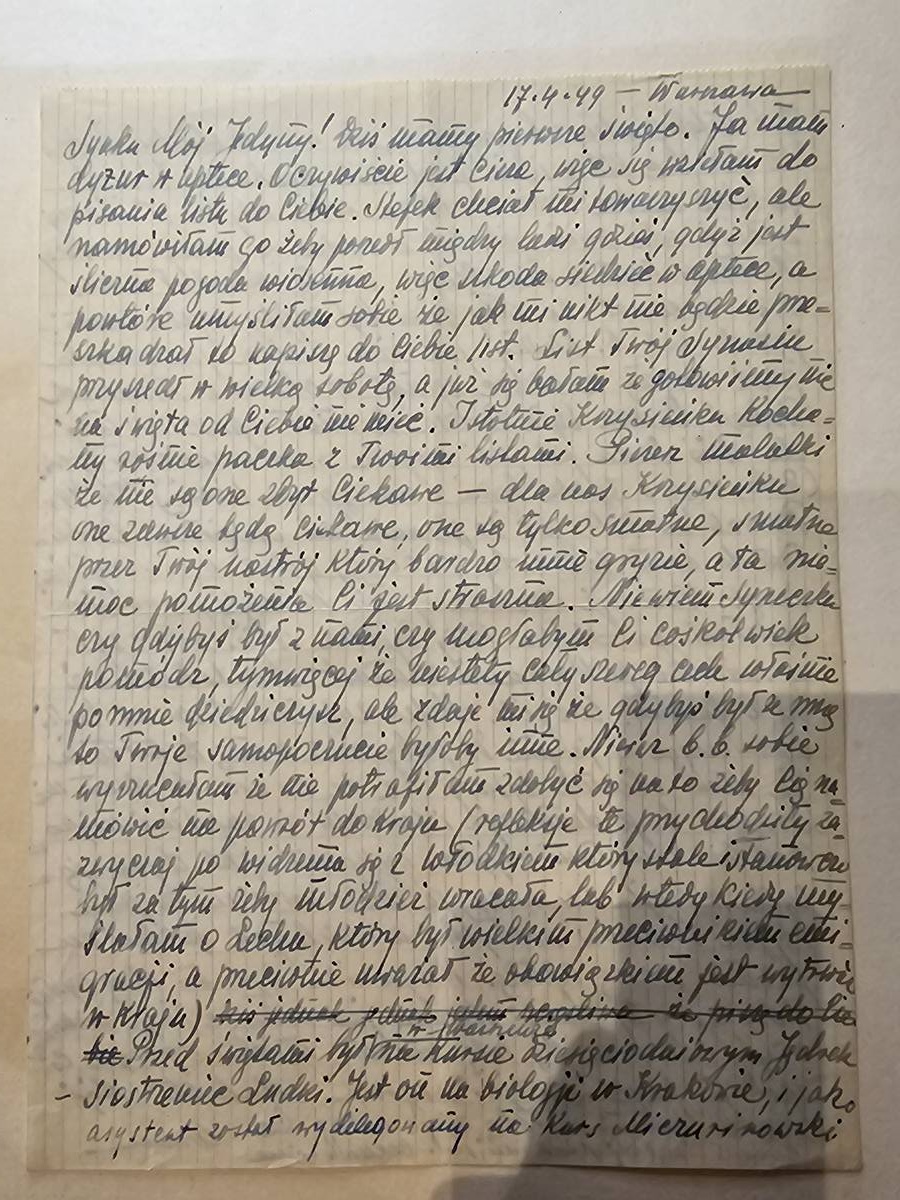 17.4.49 — Warszawa
Synku Mój Jedyny! Dziś mamy pierwsze święto. Ja mam
dyżur w aptece. Oczywiście jest cisza, więc się wzięłam do
pisania listu do Ciebie. Stefek chciał mi towarzyszyć, ale
namówiłam go żeby poszedł między ludzi gdzieś, gdyż jest
śliczna pogoda wiosenna, więc szkoda siedzieć w aptece, a
powtóre umyśliłam sobie że jak mi nikt nie będzie prze-
szkadzał to napiszę do Ciebie list. List Twój Synusiu
przyszedł w wielką sobotę, a już się bałam że gotowiśmy nic
na święta od Ciebie nie mieć. Istotnie Krzysieńku Kocha-
ny rośnie paczka z Twoimi listami. Piszesz malutki
że nie są one zbyt ciekawe — dla nas Krzysieńku
one zawsze będą ciekawe, one są tylko smutne, smutne
przez Twój nastrój który bardzo mnie gryzie, a ta nie-
moc pomożenia Ci jest straszna. Niewiem syneczku
czy gdybyś był z nami, czy mogłabym Ci cośkolwiek
pomódz, tymwięcej że niestety cały szereg cech właśnie
po mnie dziedziczysz, ale zdaje mi się że gdybyś był ze mną
to Twoje samopoczucie byłoby inne. Nieraz b. b. sobie
wyrzucałam że nie potrafiłam zdobyć się na to żeby Cię na-
mówić na powrót do Kraju (refleksje te przychodziły za-
zwyczaj po widzeniu się z Włodkiem który stale i stanowczo
był za tym żeby młodzież wracała, lub wtedy kiedy my-
ślałam o Lechu, który był wielkim przeciwnikiem emi-
gracji, a przeciwnie uważał że obowiązkiem jest wytrwać
w Kraju) dziś jednak że piszę do Cie
bie Przed świętami był w Warszawie na kursie dziesięciodniowym Jędrek
– siostrzeniec Ludki. Jest on na biologji w Krakowie, i jako
asystent został wydelegowany na Kurs Miczurinowski